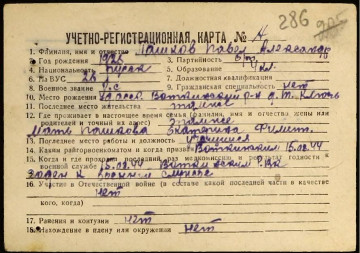 286
УЧЕТНО-РЕГИСТРАЦИОННАЯ КАРТА № А
1. Фамилия, имя и отчество Пашков Павел Александр
2. Год рождения 1926 3. Партийность б/п
4. Национальность русск 5. Образование 4 кл.
6. № ВУС 26 7. Должностная квалификация
8. Военное звание р.с 9. Гражданская специальность нет
10. Место рождения УАССР, Воткинский р-н, д.
11. Последнее место жительства там же
12. Где проживает в настоящее время семья (фамилия, имя и отчество жены или
родителей и точный их адрес)
Мать Пашкова Екатерина
13. Последнее место работы и должность учащийся
14. Каким райвоенкоматом и когда призван Воткинский 15.08.44
15. Когда и где проходил последний раз медкомиссию и результат годности к
военной службе 15.08.44 Воткинский РВК
годен к военной службе
16. Участие в Отечественной войне (в составе какой последней части в качестве
кого, когда) нет
17. Ранения и контузии нет
18. Нахождение в плену или окружении нет